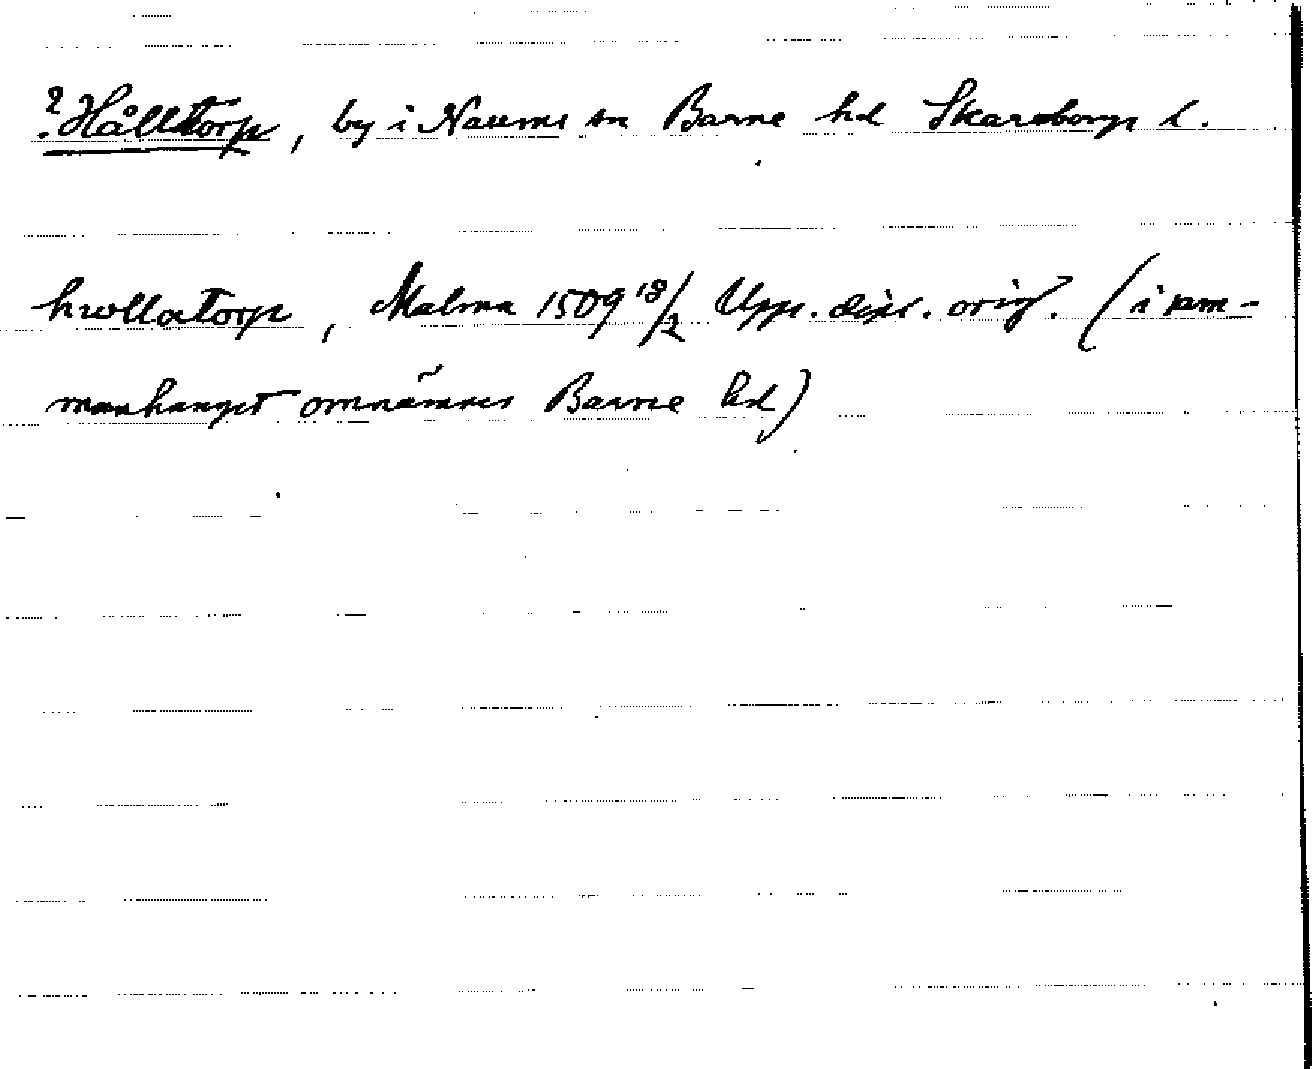 ? Hålltorp, by i Naums sn Barne hd Skaraborgs l.
hwllatorp, Malma 1509 18/2 Upps. dipl. orig. (i sam-
manhanget omnämnes Barne hd)